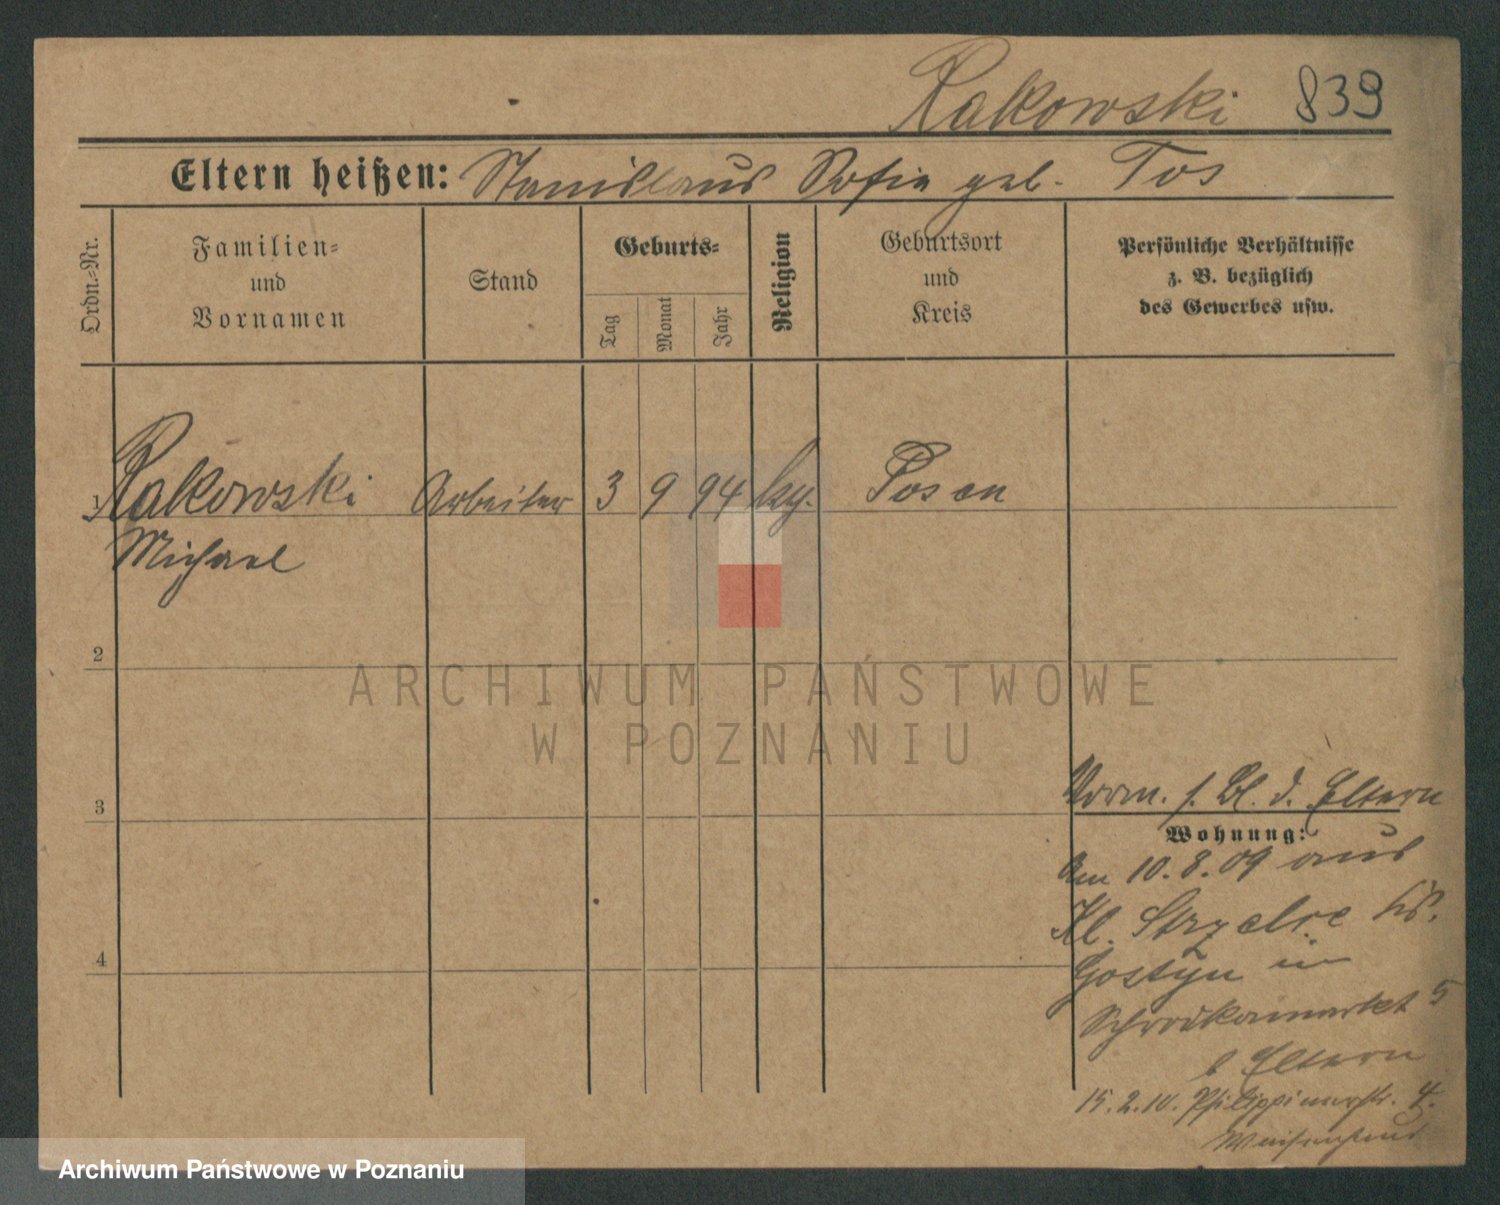 Rakowski 839
Eltern heißen: Stanislaus Sofia geb. Tos
Ordn.=Nr.
Familien=
und
Vornamen
Stand
Geburts=
Tag
Monat
Jahr
Religion
Geburtsort
und
Kreis
Persönliche Verhältnisse
z. B. bezüglich
des Gewerbes usw.
1 Rakowski Arbeiter 3 9 94 Posen
Michael
2
3
4
Vorm. s. Bl. d. Eltern
Wohnung:
Am 10.8.09 aus
Kl. Strzelce
Gostyn in
Schrodkamarkt 5
b Eltern
15.2.10. Philippinerstr. 4.
Waisenhaus
ARCHIWUM PAŃSTWOWE
W POZNANIU
Archiwum Państwowe w Poznaniu